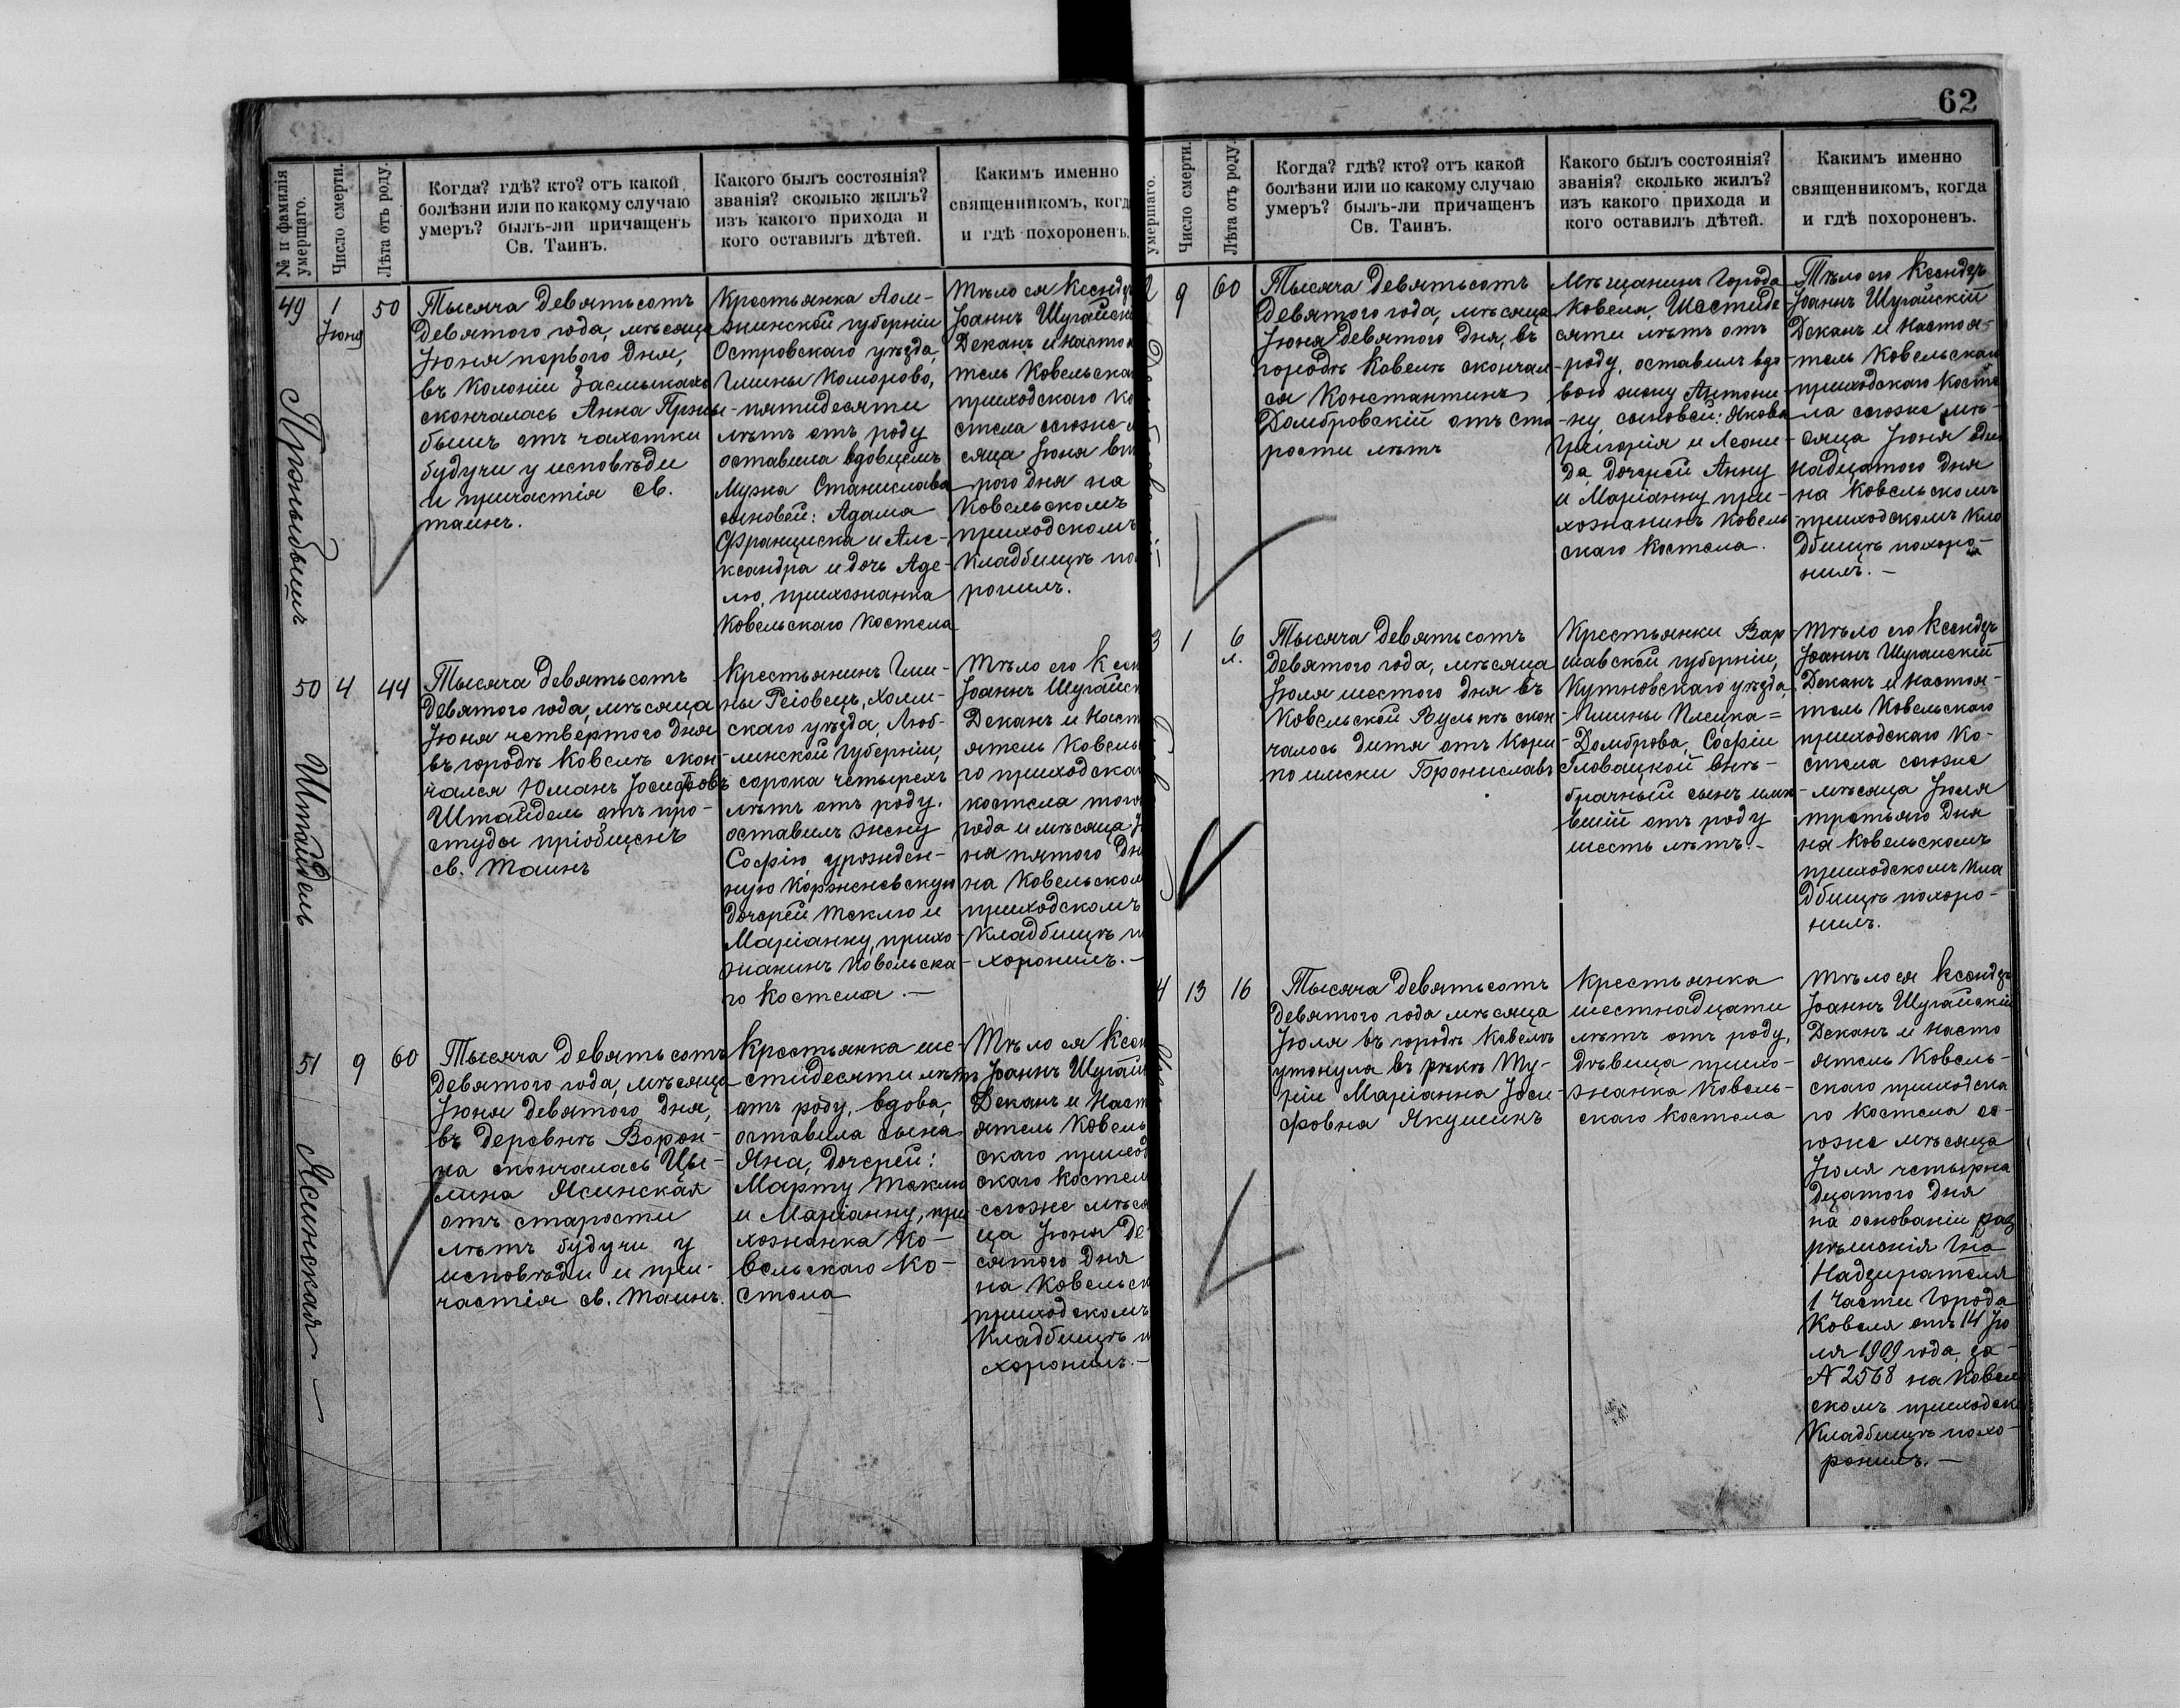 62
№ и фамилія
умершаго.
Число смерти.
Лѣта отъ роду.
Когда? гдѣ? кто? отъ какой
болѣзни или по какому случаю
умеръ? былъ-ли причащенъ
Св. Таинъ.
Какого былъ состоянія?
званія? сколько жилъ?
изъ какого прихода и
кого оставилъ дѣтей.
Какимъ именно
священникомъ, когд
и гдѣ похороненъ.
49
1
Іюня
50
Тысяча девятьсотъ
девятого года, мѣсяца
Іюня первого дня,
въ колоніи Засмыкахъ
скончалась Анна
бышъ отъ чахотки
будучи у исповѣди
и причастія Св.
таинъ.
Крестьянка Лом-
жинской губерніи
Островскаго уѣзда,
гмины Коморово,
пятидесяти
лѣтъ отъ роду
оставила вдовцемъ
мужа Станислава
сыновей: Адама
Франциска и Але-
ксандра и дочь Аде-
лю, прихожанка
Ковельскаго Костела
Тѣло ея Ксендз
Іоаннъ Шугайск
Деканъ и насто
тель Ковельска
приходскаго Ко
стела сегоже м
сяца Іюня вт
рого дня на
Ковельскомъ
приходскомъ
кладбищѣ по
ронилъ.
50
4
44
Штайдель
Тысяча девятьсотъ
девятого года, мѣсяца
Іюня четвертого дня
въ городѣ Ковелѣ скон-
чался Юманъ Іосифовъ
Штайдель отъ про-
студы пріобщенъ
св. Таинъ
Крестьянинъ гми-
ны Реіовецъ, Холм-
скаго уѣзда, Люб-
линской губерніи,
сорока четырехъ
лѣтъ отъ роду.
оставилъ жену
Софію, урожден-
ную Корженевскую
дочерей Теклю и
Маріанну, прихо-
жанинъ Ковельска-
го Костела.—
Тѣло его Ксен
Іоаннъ Шугайск
Деканъ и Наст
ятель Ковель
го приходска
костела того
года и мѣсяца І
ня пятого дн
на Ковельском
приходскомъ
кладбищѣ п
хоронилъ.—
51
9
60
Ясинская —
Тысяча девятьсотъ
девятого года, мѣсяца
Іюня девятого дня,
въ деревнѣ Ворон-
на скончалась Цы-
лина Ясинская
отъ старости
лѣтъ будучи у
исповѣди и при-
частія св. Таинъ.
Крестьянка ше-
стидесяти лѣтъ
отъ роду, вдова,
оставила сына
Яна, дочерей:
Марту Теклю
и Маріанну, при
хожанка Ко-
вельскаго Ко-
стела
Тѣло ея Ксен
Іоаннъ Шугай
Деканъ и Наст
ятель Ковель
скаго приход
скаго Костел
сегоже мѣся
ца Іюня де
сятого дня
на Ковельск
приходскомъ
Кладбищѣ п
хоронилъ.—
умершаго.
Число смерти.
Лѣта отъ роду.
Когда? гдѣ? кто? отъ какой
болѣзни или по какому случаю
умеръ? былъ-ли причащенъ
Св. Таинъ.
Какого былъ состоянія?
званія? сколько жилъ?
изъ какого прихода и
кого оставилъ дѣтей.
Какимъ именно
священникомъ, когда
и гдѣ похороненъ.
2
9
60
Тысяча девятьсотъ
девятого года, мѣсяца
Іюня девятого дня, въ
городѣ Ковелѣ скончал-
ся Константинъ
Домбровскій отъ ста
рости лѣтъ
Мѣщанинъ города
Ковеля, Шестиде-
сяти лѣтъ отъ
роду, оставилъ вдо-
вою жену Антони-
ну, сыновей: Якова
Григорія и Леони-
да, дочерей Анну
и Маріанну при-
хожанинъ Ковель
скаго Костела.
Тѣло его Ксендзъ
Іоаннъ Шугайскій
Деканъ и Настоя-
тель Ковельскаго
приходскаго Косте
ла сегоже мѣ-
сяца Іюня оди
надцатого дня
на Ковельскомъ
приходскомъ кла
дбищѣ похоро-
нилъ.—
3
1
6
л.
Тысяча девятьсотъ
девятого года, мѣсяца
Іюля шестого дня въ
Ковельской Вулькѣ скон-
чалось дитя отъ Кори
по имени Брониславъ
Крестьянки Вар-
шавской губерніи,
Кутновскаго уѣзда,
гмины Плецка=
Домброва, Софіи
Гловацкой внѣ-
брачный сынъ имѣ
вшій отъ роду
шесть лѣтъ.-
Тѣло его Ксендзъ
Іоаннъ Шугайскій
Деканъ и Настоя-
тель Ковельскаго
приходскаго Ко-
стела сегоже
мѣсяца Іюля
третьяго дня
на Ковельскомъ
приходскомъ Кла
дбищѣ похоро-
нилъ.
4
13
16
Тысяча девятьсотъ
девятого года мѣсяца
Іюля въ городѣ Ковелѣ
утонула въ рѣкѣ Ту-
ріи Маріанна Іоси-
фовна Якушинъ
Крестьянка
шестнадцати
лѣтъ отъ роду,
дѣвица прихо-
жанка Ковель-
скаго Костела
Тѣло ея Ксендзъ
Іоаннъ Шугайскій
Деканъ и Насто
ятель Ковель-
скаго приходска
го Костела се-
гоже мѣсяца
Іюля четырна
дцатого дня
на основаніи раз
рѣшенія Гна
Надзирателя
1 части города
Ковеля отъ 14 Ію
ля 1909 года за
№ 2568 на Ковел
скомъ приходск
Кладбищѣ похо-
ронилъ.—